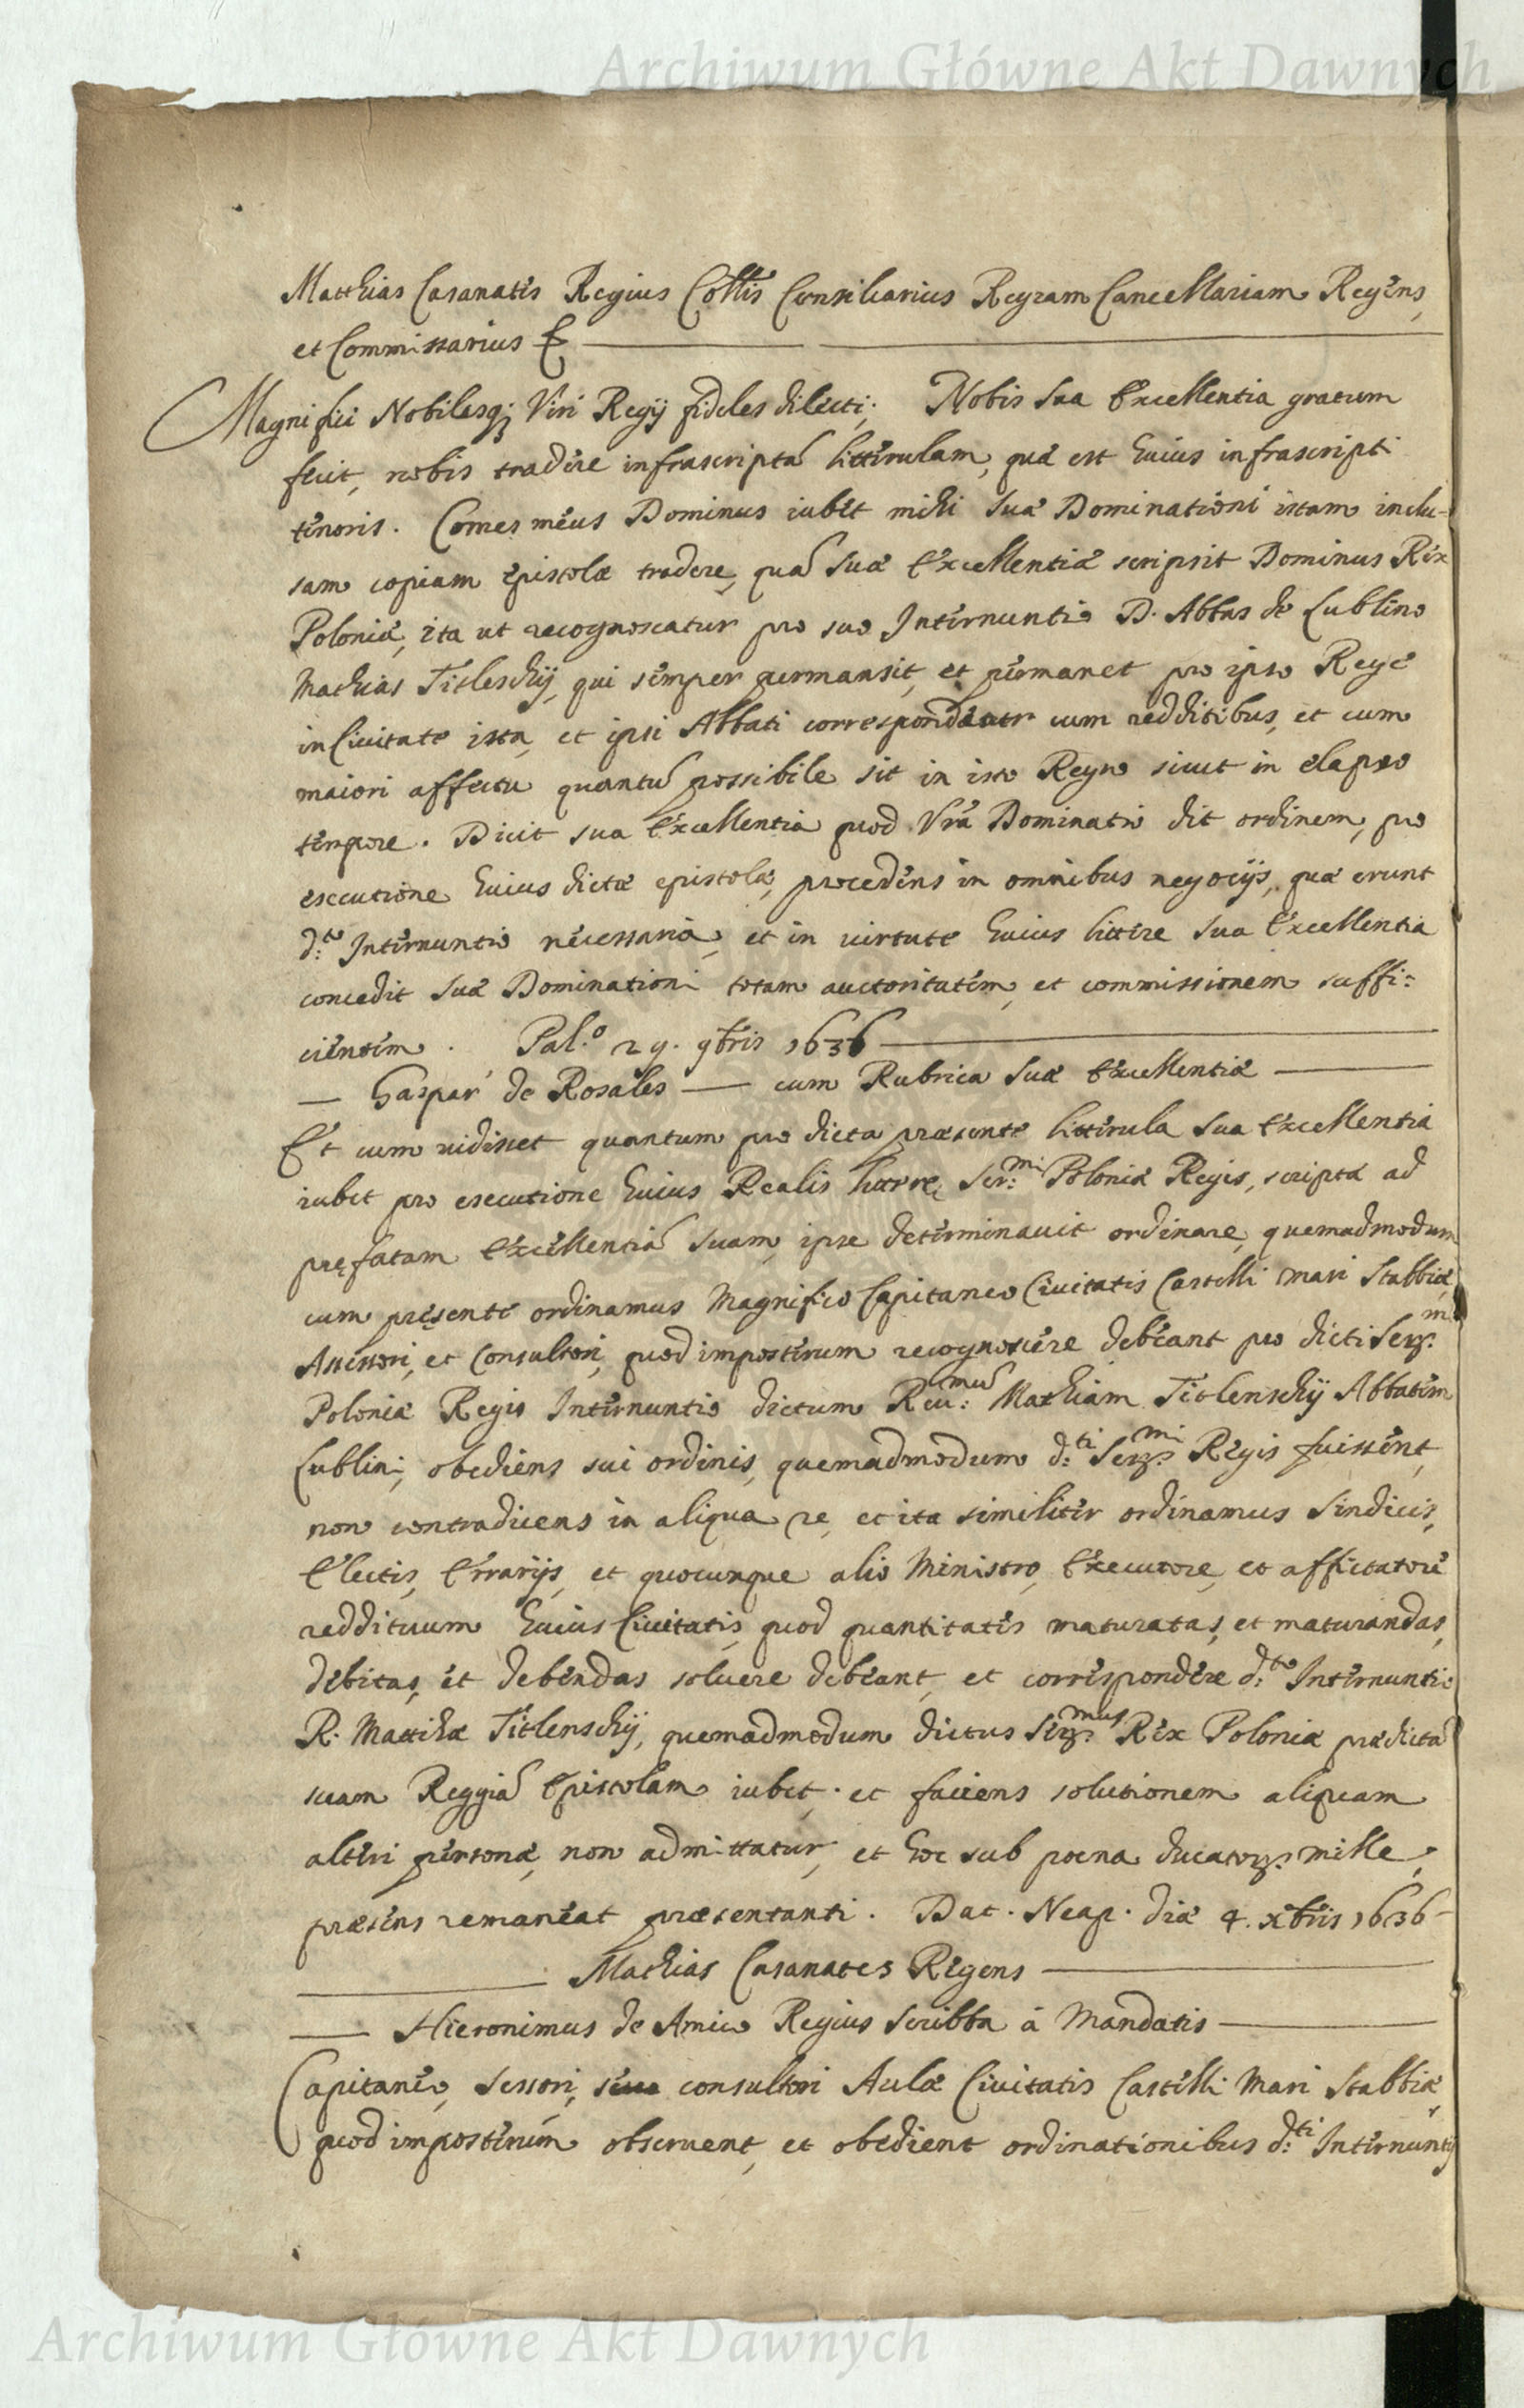 Archiwum Główne Akt Dawnych
Matthias Casanates Regius Collis Consiliarius Regiam Cancellariam Regens,
et Commissarius &
Magnifici Nobilesq; Viri Regij fideles dilecti. Nobis sua Excellentia gratum
fecit, nobis tradere infrascriptā litterulam, quæ est huius infrascripti
tenoris. Comes meus Dominus iubet mihi suæ Dominationi istam inclu-
sam copiam epistolæ tradere, quā suæ Excellentiæ scripsit Dominus Rex
Poloniæ, ita ut recognoscatur pro suo Internuntio D. Abbas de Lublino
Mathias Titleschij, qui semper permansit, et permanet pro ipso Rege
in Ciuitate ista, et ipsi Abbati correspondeatr cum redditibus, et cum
maiori affectu quantū possibile sit in isto Regno sicut in elapso
tempore. Dicit sua Excellentia quod Vrā Dominatio det ordinem, pro
esecutione huius dictæ epistolæ, procedens in omnibus negocijs, quæ erunt
d:to Internuntio necessaria, et in virtute huius littere sua Excellentia
concedit suæ Dominationi totam auctoritatem, et commissionem suffi:
cientem. Pal.o 29. 9bris 1636
Gaspar de Rosales cum Rubrica suæ Excellentiæ
Et cum vidisset quantum pro dicta præsente litterula sua Excellentia
iubet pro esecutione huius Realis litteræ Ser:mi Poloniæ Regis, scriptæ ad
præfatam Excellentiā suam, ipse determinauit ordinare, quemadmodum
cum præsente ordinamus Magnifico Capitaneo Ciuitatis Castelli mari Stabbiæ,
Assessori, et Consultori, quod imposterum recognoscere debeant pro dicti Serr.mi
Poloniæ Regis Internuntio dictum Reu:mū Mathiam Titlenschij Abbatem
Lublini, obediens sui ordinis, quemadmodum d:ti Serr.mi Regis fuissent,
non contradicens in aliqua re, et ita similiter ordinamus Sindicis,
Electis, Errarijs, et quocunque alio Ministro, Executore, et affictatore
reddituum huius Ciuitatis, quod quantitates maturatas, et maturandas,
debitas, et debendas soluere debeant, et correspondere d:to Internuntio
R. Matthiæ Titlenschij, quemadmodum dictus Serr.mus Rex Poloniæ prædictā
suam Reggiā Epistolam iubet. et faciens solutionem aliquam
alteri personæ, non admittatur, et hoc sub poena ducatorr. mille,
præsens remaneat præsentanti. Dat. Neap. die 4. Xbris 1636
Mathias Casanates Regens
Hieronimus de Amico Regius Scribba à Mandatis
Capitaneo, Sessori, siue consultori Aulæ Ciuitatis Castelli Mari Stabbiæ,
quod imposterum obseruent, et obedient ordinationibus d:ti Internuntij
Archiwum Główne Akt Dawnych